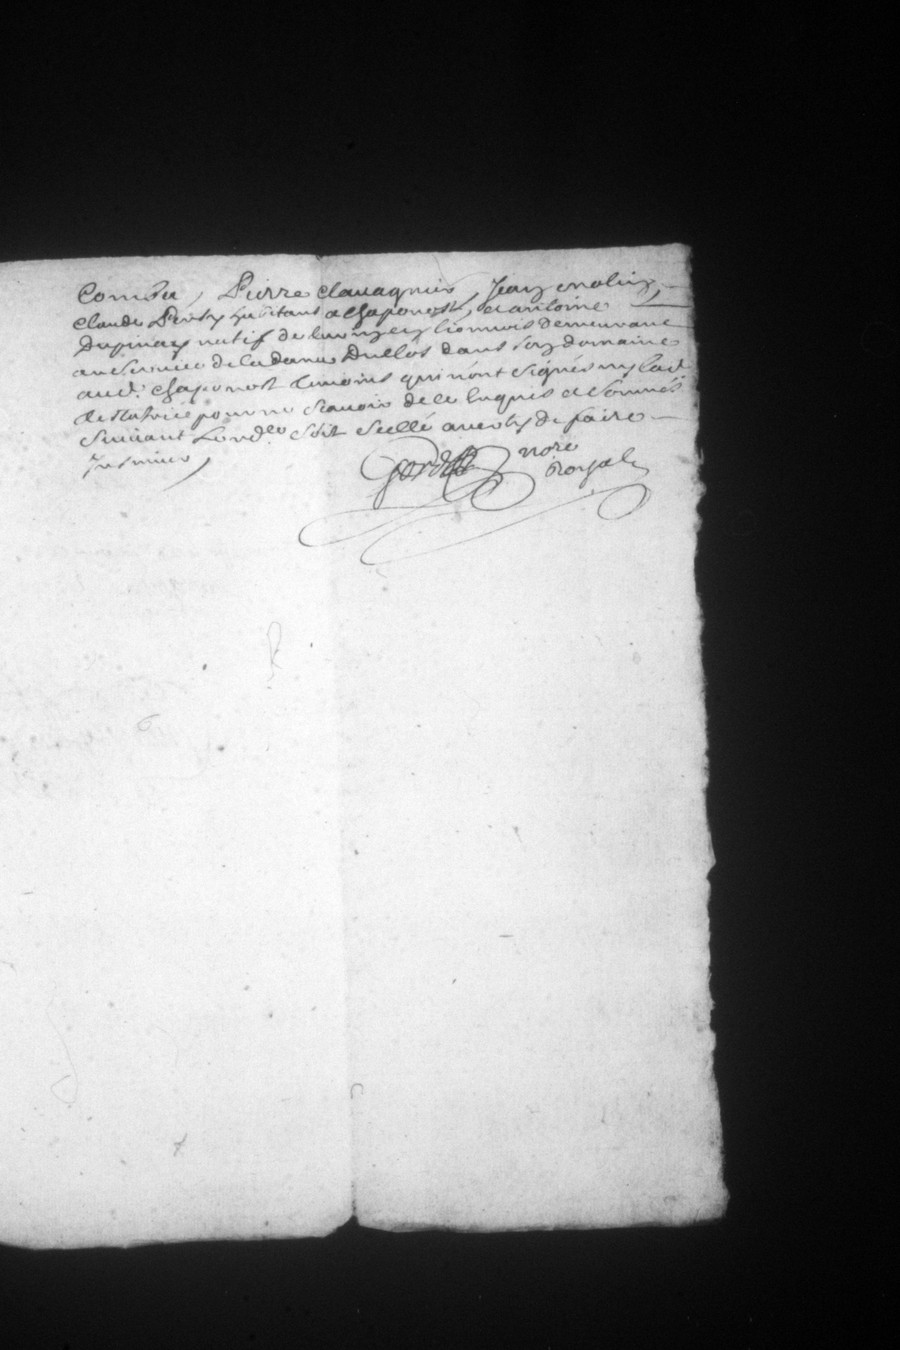 Combu, Pierre clavagnier, Jean molin,
claude Petit habitans a chaponost, et antoine
Dupinay natif de en lionnois demeurant
au service de la dame Dullos dans son domaine
aud. chaponost temoins qui n'ont signés ny lad
testatrice pour ne scavoir de ce enquis et sommés
suivant l'ord.ce soit scellé avertis de faire
Insinuer,
nore
Royal